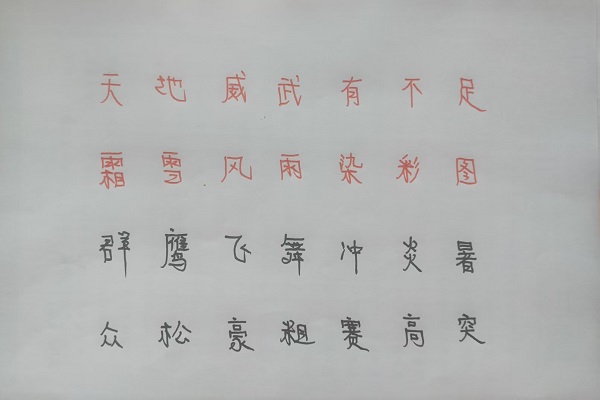 天地威武有不足
霜雪风雨染彩图
群鹰飞舞冲炎暑
众松豪粗赛高突